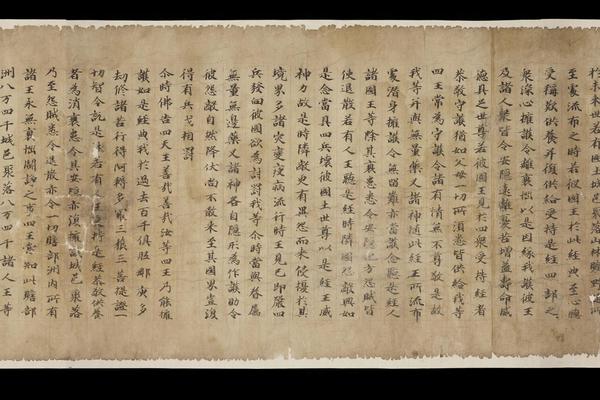 於未來世若有國土城邑聚落山林曠野所
至處流布之時若彼國王於此經典至心聽
受稱歎供養并復供給受持是經四部之
眾深心擁護令離衰惱以是因緣我護彼王
及諸人眾皆令安隱遠離憂苦增益壽命威
德具足世尊若彼國王見於四眾受持經者
恭敬守護猶如父母一切所湏悉皆供給我等
四王常為守護令諸有情無不尊敬是故
我等并與無量藥叉諸神隨此經王所流布
處潛身擁護令無留難亦當護念聽是經人
諸國王等除其衰患悉令安隱他方怨賊皆
使退散若有人王聽是經時隣國怨敵興如
是念當具四兵壞彼國土世尊以是經王威
神力故是時隣敵更有異怨而來侵擾於其
境界多諸灾變疫病流行時王見已即嚴四
兵發向彼國欲為討罰我等尒時當與眷屬
無量無邊藥叉諸神各自隱形為作護助令
彼怨敵自然降伏尚不敢來至其國界豈復
得有兵戈相罰
尒時佛告四天王善哉善哉汝等四王乃能擁
護如是經典我於過去百千俱胝那庾多
劫修諸苦行得阿耨多羅三藐三菩提證一
切智今說是法若有人王受持是經恭敬供養
者為消衰患令其安隱亦復擁護城邑聚落
乃至怨賊悉令退散亦令一切贍部洲內所有
諸王永無衰惱鬪諍之事四王當知此贍部
洲八万四千城邑聚落八万四千諸人王等